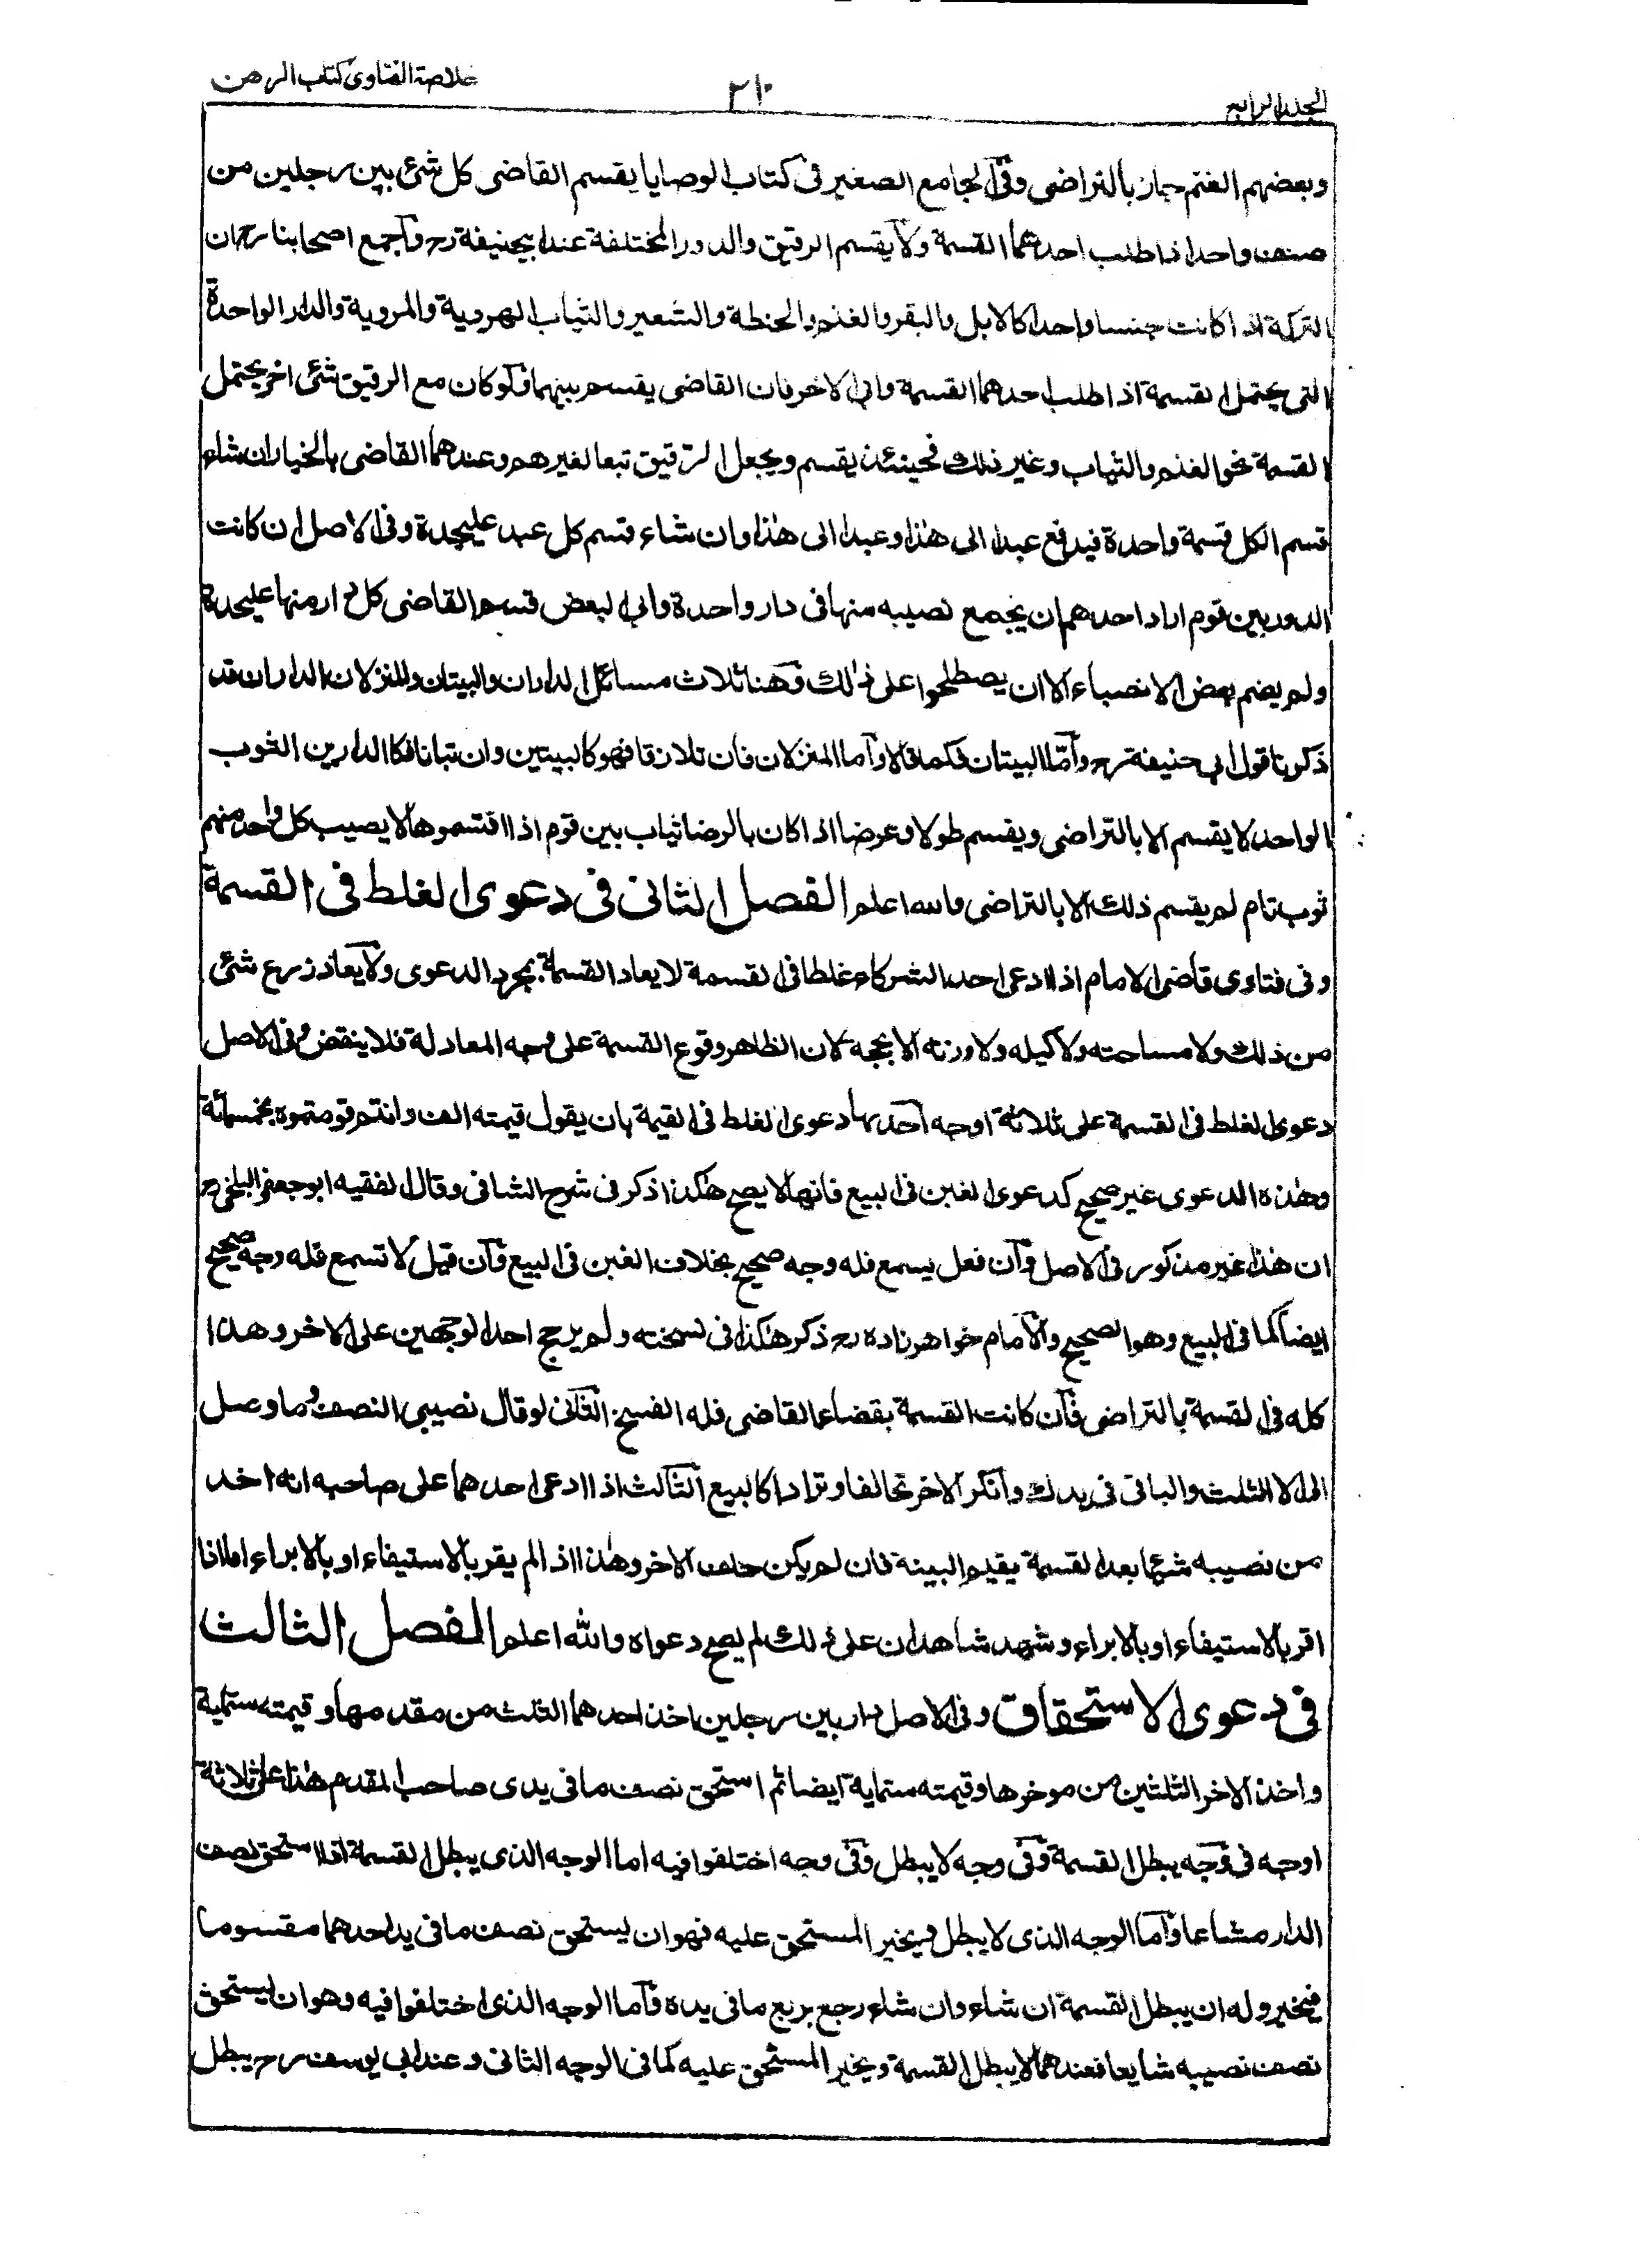 الجلد الرابع
٢١٠
خلاصة الفتاوى كتاب الرهن
وبعضهم الغنم جاز بالتراضى وفى الجامع الصغير فى كتاب الوصايا يقسم القاضى كل شئ بين رجلين من
صنف واحد اذا طلب احدهما القسمة ولا يقسم الرقيق والدور المختلفة عند ابيحنيفة رح وآجمع اصحابنا رح ان
التركة اذا كانت جنسا واحدا كالابل والبقر والغنم والحنطة والشعير والثياب الهروية والمروية والدار الواحدة
التى يحتمل القسمة اذا طلب احدهما القسمة وابى الاخر فان القاضى يقسم بينهما ولو كان مع الرقيق شئ اخر يحتمل
القسمة نحو الغنم والثياب وغير ذلك فحينئذ يقسم ويجعل الرقيق تبعا لغيرهم وعندهما القاضى بالخيار ان شاء
قسم الكل قسمة واحدة فيدفع عبدا الى هذا وعبدا الى هذا وان شاء قسم كل عبد عليحدة وفى الاصل ان كانت
الدور بين قوم اراد احدهم ان يجمع نصيبه منها فى دار واحدة وابى البعض قسم القاضى كل دار منها عليحدة
ولم يضم بعض الانصباء الا ان يصطلحوا على ذلك وههنا ثلاث مسائل الداران والبيتان والمنزلان الداران قد
ذكرنا قول ابى حنيفة رح وآمّا البيتان فكما قالا وآما المنزلان فان تلازقا فهو كالبيتين وان تباينا فكالدارين الثوب
الواحد لا يقسم الا بالتراضى ويقسم طولا وعرضا اذا كان بالرضا ثياب بين قوم اذا اقتسموها لا يصيب كل واحد منهم
ثوب تام لم يقسم ذلك الا بالتراضى والله اعلم الفصل الثانى فى دعوى الغلط فى القسمة
وفى فتاوى قاضى الامام اذا ادعى احد الشركاء غلطا فى القسمة لا يعاد القسمة بمجرد الدعوى ولا يعاد زرع شئ
من ذلك ولا مساحته ولا كيله ولا وزنه الا بحجة لان الظاهر وقوع القسمة على وجه المعادلة فلا ينقض وفى الاصل
دعوى الغلط فى القسمة على ثلاثة اوجه آحدها دعوى الغلط فى القيمة بان يقول قيمته الف وانتم قومتموه بخمسمائة
وهذه الدعوى غير صحيح كدعوى الغبن فى البيع فانها لا يصح هكذا ذكر فى شرح الشافى وقال الفقيه ابو جعفر البلخى رح
ان هذا غير مذكور فى الاصل وآن فعل يسمع فله وجه صحيح بخلاف الغبن فى البيع وآن قيل لا تسمع فله وجه صحيح
ايضا كما فى البيع وهو الصحيح والآمام خواهرزاده رح ذكر هكذا فى نسخته ولم يرجح احد الوجهين على الاخر وهذا
كله فى القسمة بالتراضى فآن كانت القسمة بقضاء القاضى فله الفسخ الثآنى لو قال نصيبى النصف وما وصل
الى الا الثلث والباقى فى يدك وآنكر الاخر تحالفا وترادا كالبيع الثآلث اذا ادعى احدهما على صاحبه انه اخذ
من نصيبه شيئا بعد القسمة يقيم البينة فان لم يكن حلف الاخر وهذا اذا لم يقر بالاستيفاء او بالابراء اما اذا
اقر بالاستيفاء او بالابراء وشهد شاهدان على ذلك لم يصح دعواه والله اعلم الفصل الثالث
فى دعوى الاستحقاق وفى الاصل دار بين رجلين اخذ احدهما الثلث من مقدمها وقيمته ستماية
واخذ الاخر الثلثين من موخرها وقيمته ستماية ايضا ثم استحق نصف ما فى يدى صاحب المقدم هذا على ثلاثة
اوجه فى وجه يبطل القسمة وفى وجه لا يبطل وفى وجه اختلفوا فيه اما الوجه الذى يبطل القسمة اذا استحق نصف
الدار مشاعا وآما الوجه الذى لا يبطل فيخير المستحق عليه فهو ان يستحق نصف ما فى يد احدهما مقسوما
فيخير وله ان يبطل القسمة ان شاء وان شاء رجع بربع ما فى يده وآما الوجه الذى اختلفوا فيه وهو ان يستحق
نصف نصيبه شايعا فعندهما لا يبطل القسمة ويخير المستحق عليه كما فى الوجه الثانى وعند ابى يوسف رح يبطل